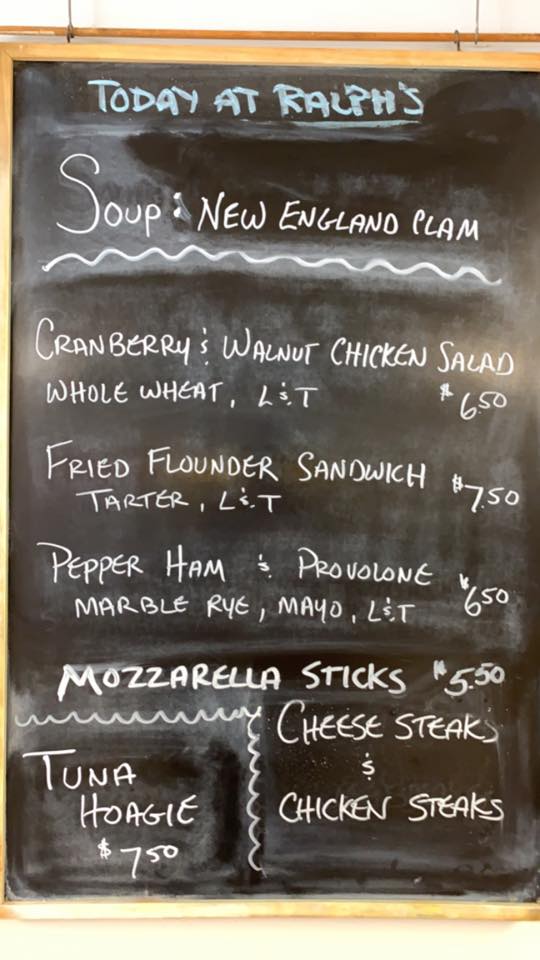 TODAY AT RALPH'S
SOUP: NEW ENGLAND CLAM
CRANBERRY & WALNUT CHICKEN SALAD
WHOLE WHEAT, L&T $6.50
FRIED FLOUNDER SANDWICH $7.50
TARTER, L&T
PEPPER HAM & PROVOLONE $6.50
MARBLE RYE, MAYO, L&T
MOZZARELLA STICKS $5.50
TUNA
HOAGIE
$7.50
CHEESE STEAKS
&
CHICKEN STEAKS